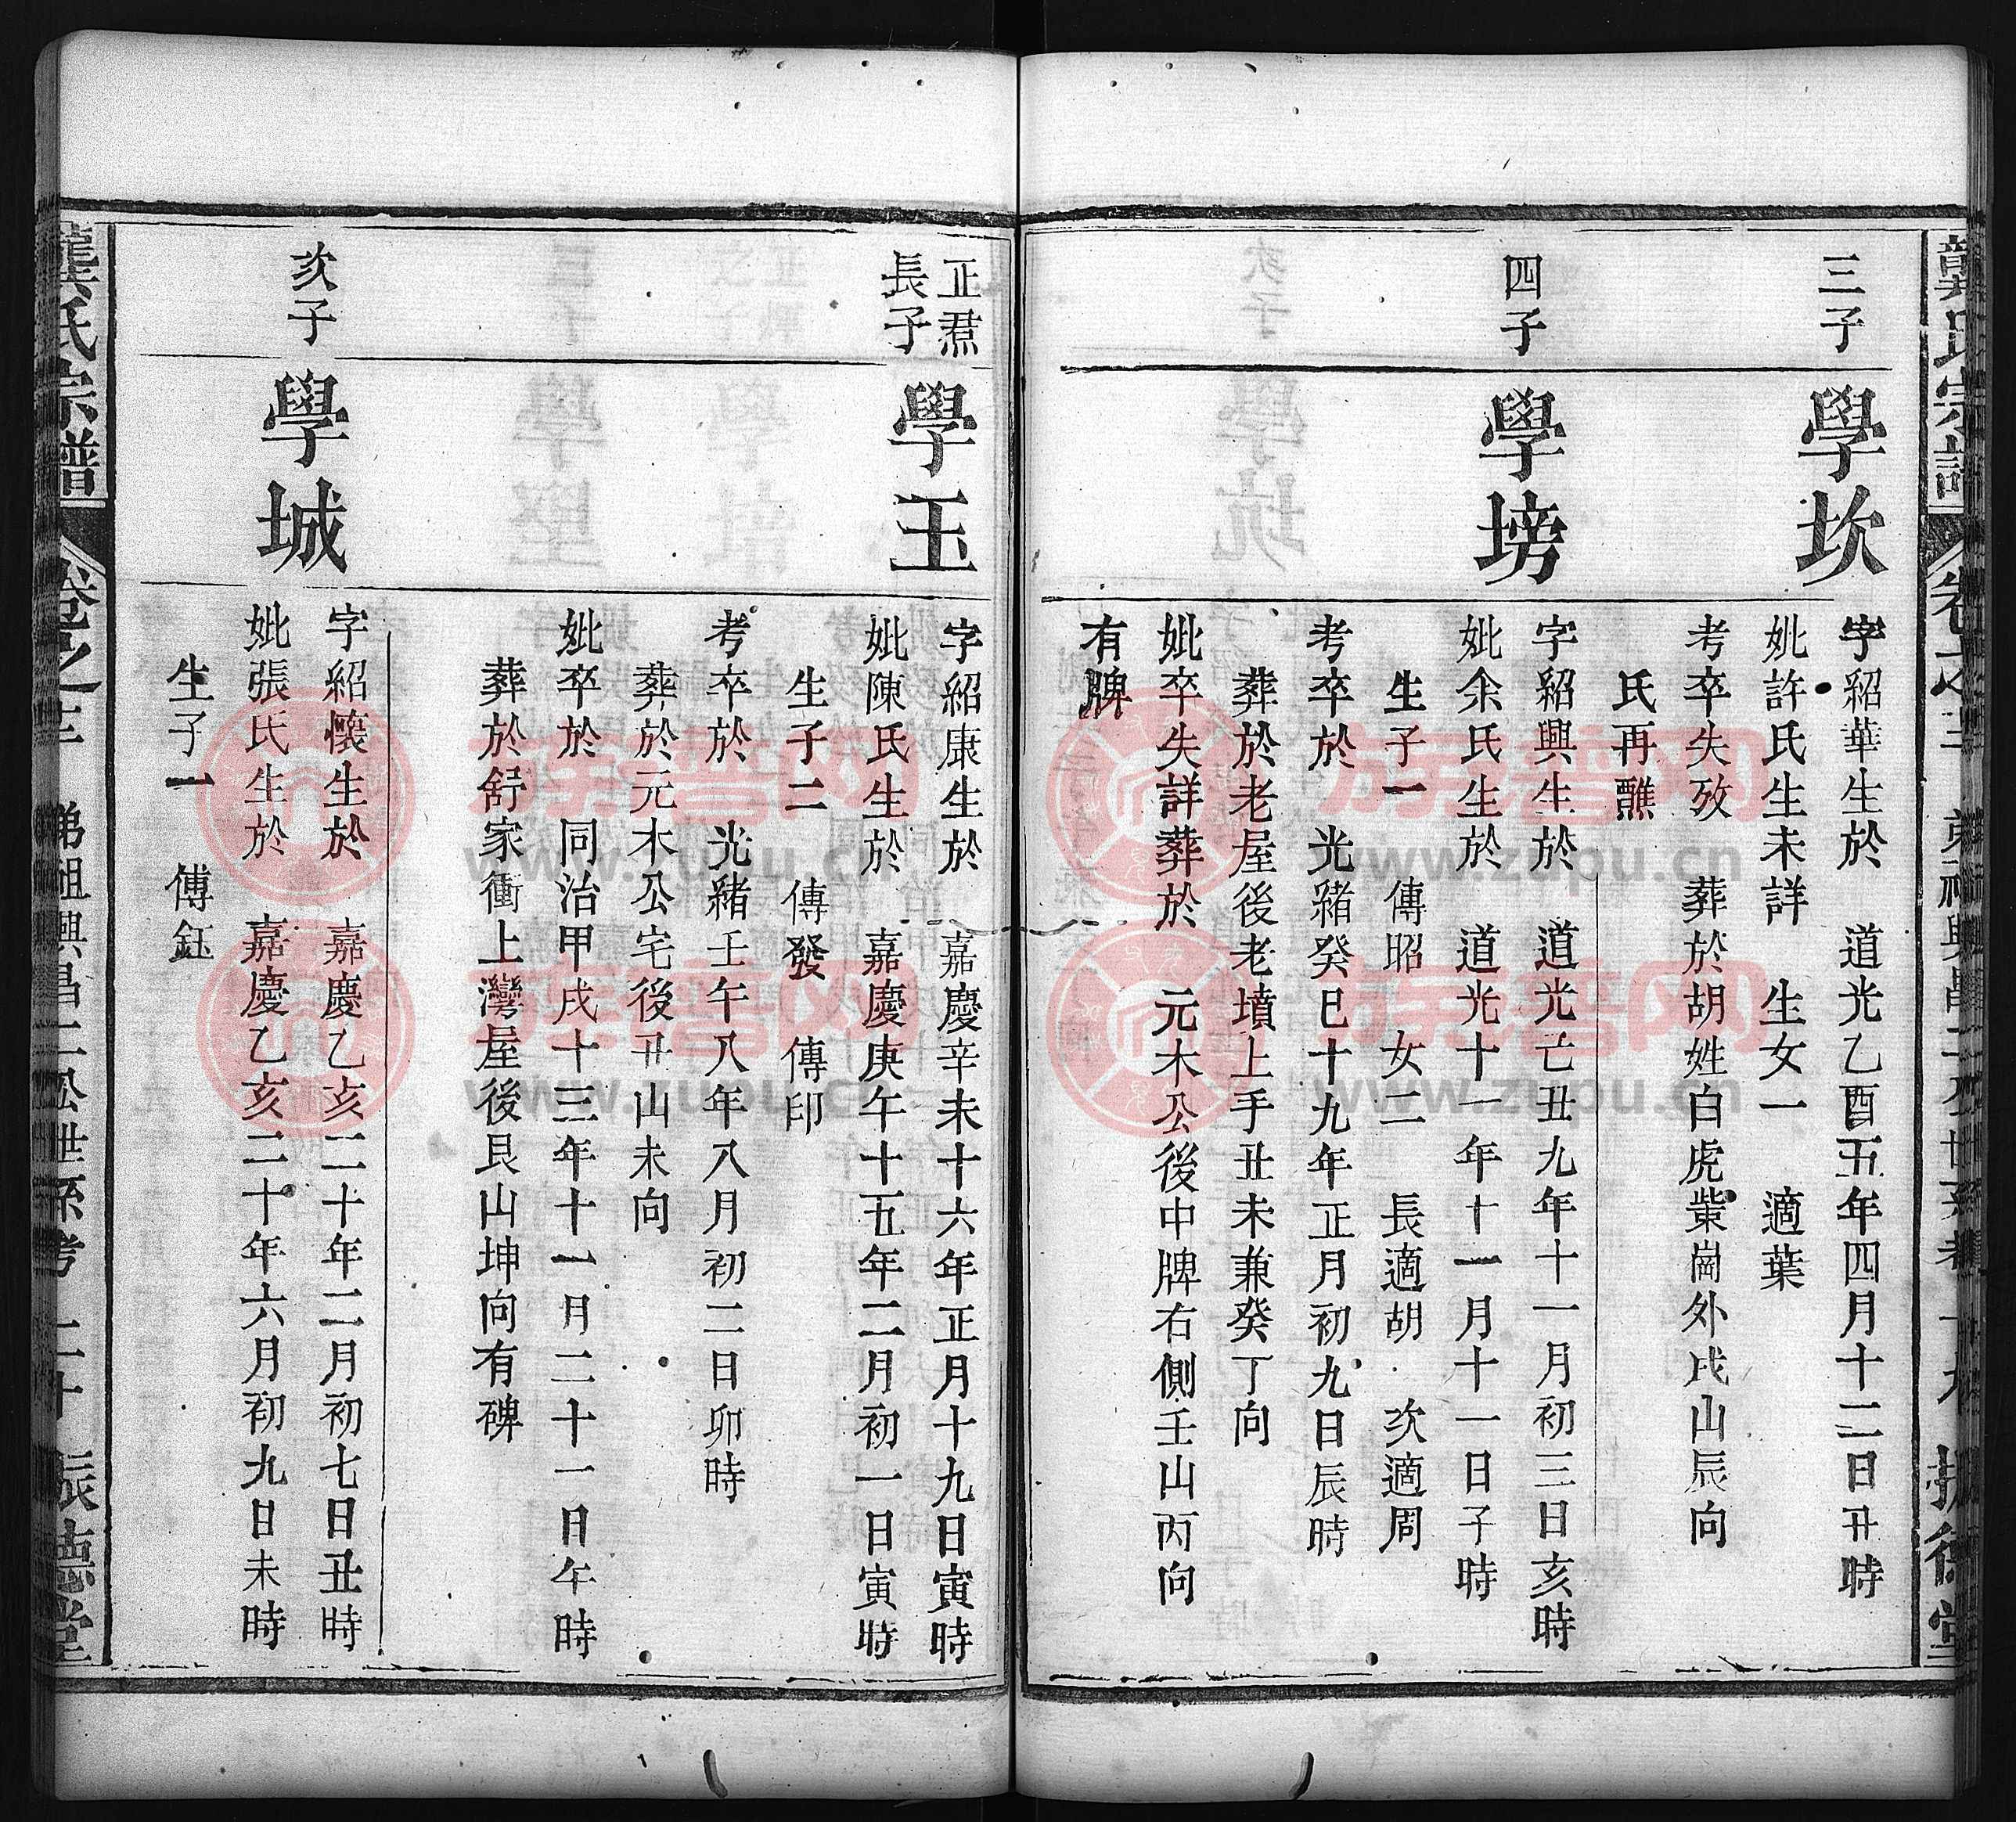 三子
學坎
字紹華生於 道光乙酉五年四月十二日丑時
妣許氏生未詳 生女一 適葉
考卒失攷 葬於胡姓白虎業崗外戌山辰向
氏再醮
四子
學塝
字紹興生於 道光己丑九年十一月初三日亥時
妣余氏生於 道光十一年十一月十一日子時
生子一 傳昭 女二 長適胡 次適周
考卒於 光緒癸巳十九年正月初九日辰時
葬於老屋後老墳上手丑未兼癸丁向
妣卒失詳葬於 元木公後中牌右側壬山丙向
有牌
正焄
長子
學玉
字紹康生於 嘉慶辛未十六年正月十九日寅時
妣陳氏生於 嘉慶庚午十五年二月初一日寅時
生子二 傳發 傳印
考卒於 光緒壬午八年八月初二日卯時
葬於元木公宅後丑山未向
妣卒於 同治甲戌十三年十一月二十一日午時
葬於舒家衝上灣屋後艮山坤向有碑
次子
學城
字紹懷生於 嘉慶乙亥二十年二月初七日丑時
妣張氏生於 嘉慶乙亥二十年六月初九日未時
生子一 傳鈺
龔氏宗譜 卷之三 興昌二公世系考 二十 振德堂
族譜网
www.zupu.cn
族譜网
www.zupu.cn
族譜网
www.zupu.cn
族譜网
www.zupu.cn